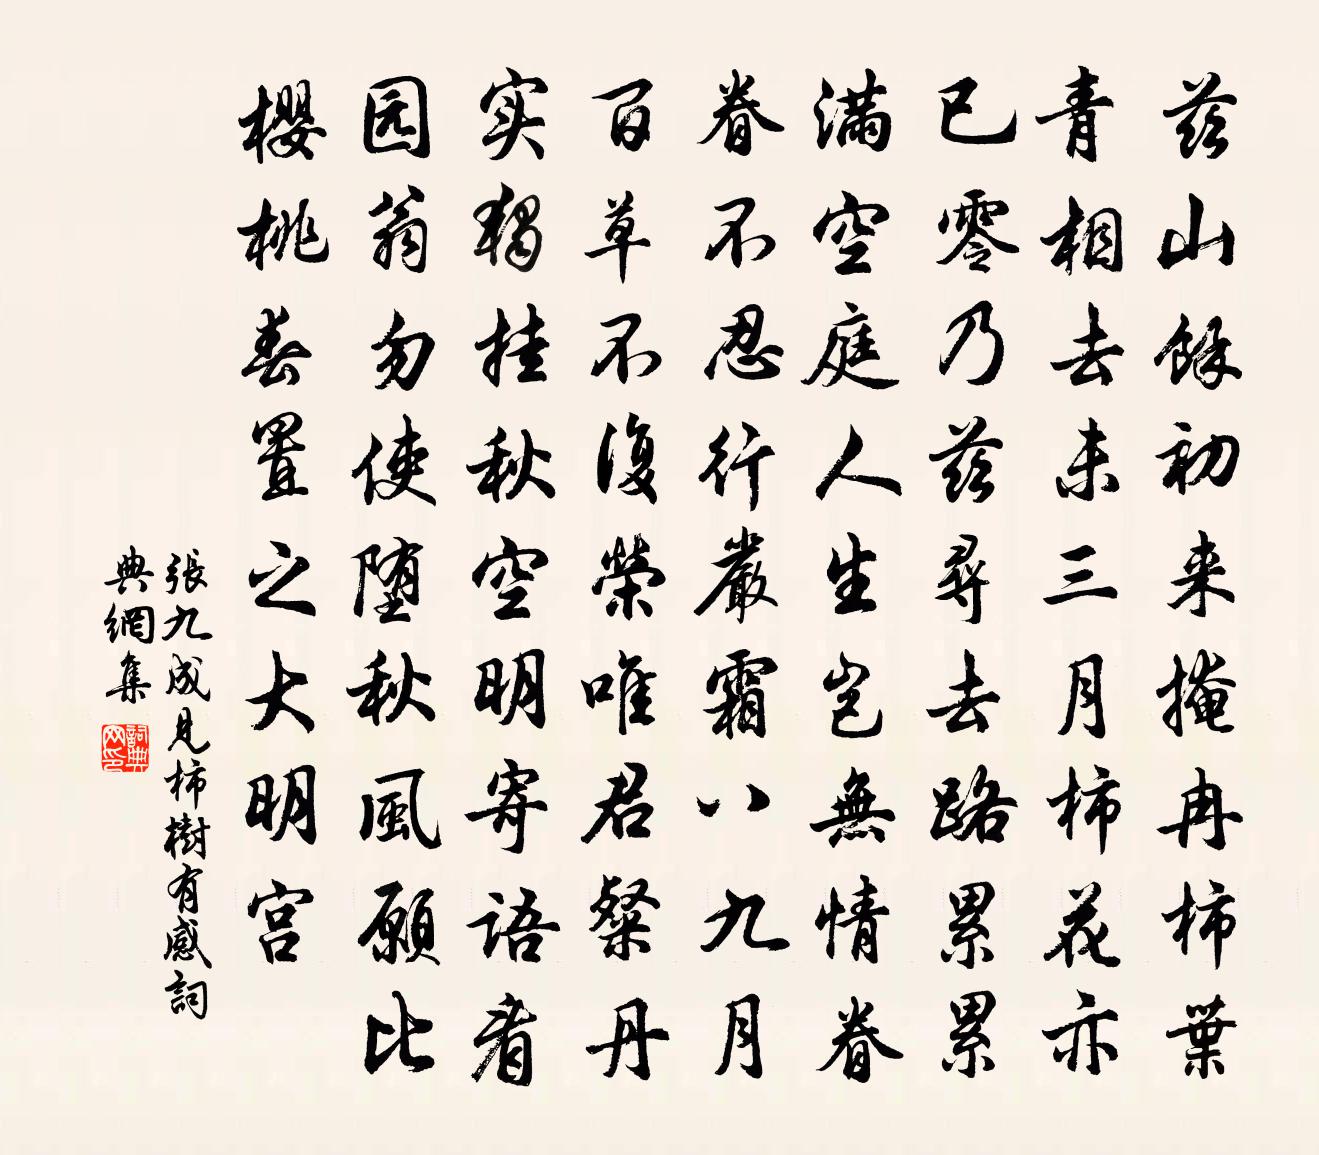 兹山餘初来掩冉柿葉
青相去未三月柿花亦
已零乃兹尋去路累累
滿空庭人生豈無情眷
眷不忍行嚴霜八九月
百草不復榮唯君粲丹
实獨挂秋空明寄语看
园翁勿使堕秋風願比
櫻桃春置之大明宫
張九成見柿樹有感詞
典網集
詞典
网印